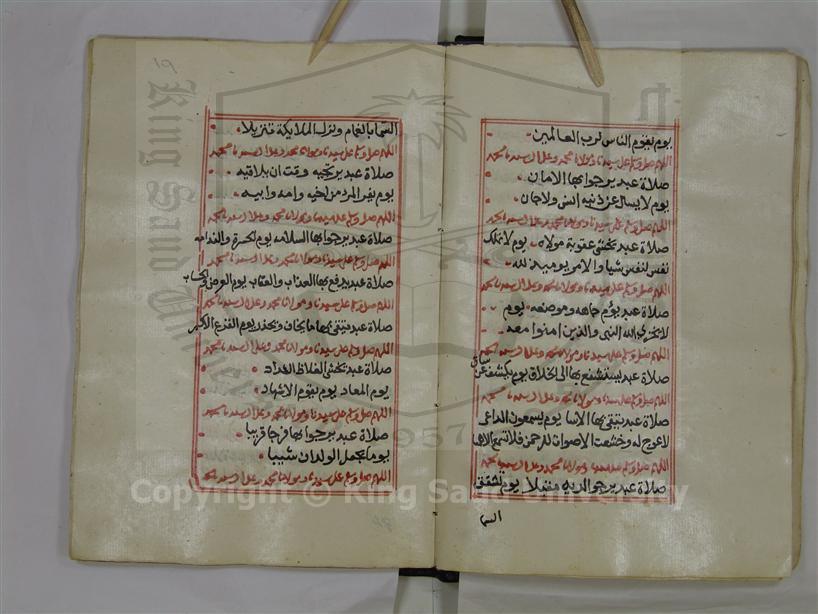 يوم يقوم الناس لرب العالمين
اللهم صل وسلم على سيدنا ومولانا محمد وعلى ال سيدنا محمد
صلاة عبد يرجوا بها الامان
يوم لا يسال عن ذنبه انس ولا جان
اللهم صل وسلم على سيدنا ومولانا محمد وعلى ال سيدنا محمد
صلاة عبد يخشى عقوبة مولاه يوم لا تملك
نفس لنفس شيا والامر يوميذ لله
اللهم صل وسلم على سيدنا ومولانا محمد وعلى ال سيدنا محمد
صلاة عبد يؤم جاهه يوم
لا يخزى الله النبى والذين امنوا معه
اللهم صل وسلم على سيدنا ومولانا محمد وعلى ال سيدنا محمد
صلاة عبد يستشفع بها الى الخلاق يوم يكشف عن ساق
اللهم صل وسلم على سيدنا ومولانا محمد وعلى ال سيدنا محمد
صلاة عبد يتقى بها الاسا يوم يسمعون الداعى
لا عوج له وخشعت الاصوات للرحمن فلا تسمع الا همسا
اللهم صل وسلم على سيدنا ومولانا محمد وعلى ال سيدنا محمد
صلاة عبد يرجوا لديه مقيلا يوم تشقق
السما
19
السما بالغمام ونزل الملايكة تنزيلا
اللهم صل وسلم على سيدنا ومولانا محمد وعلى ال سيدنا محمد
صلاة عبد وقت ان يلاقيه
يوم يفر المرء من اخيه وامه وابيه
اللهم صل وسلم على سيدنا ومولانا محمد وعلى ال سيدنا محمد
صلاة عبد يرجوا بها السلامه يوم الحسرة والندامه
اللهم صل وسلم على سيدنا ومولانا محمد وعلى ال سيدنا محمد
صلاة عبد يرفع بها العذاب والعقاب يوم العرض والحساب
اللهم صل وسلم على سيدنا ومولانا محمد وعلى ال سيدنا محمد
صلاة عبد يتقى بها ما يخاف ويحذر يوم الفزع الاكبر
اللهم صل وسلم على سيدنا ومولانا محمد وعلى ال سيدنا محمد
صلاة عبد يخشى الغلاظ الشداد
يوم المعاد يوم يقوم الاشهاد
اللهم صل وسلم على سيدنا ومولانا محمد وعلى ال سيدنا محمد
صلاة عبد يرجوا بها فرجا قريبا
يوما يجعل الولدان شيبا
اللهم صل وسلم على سيدنا ومولانا محمد وعلى ال سيدنا محمد
King Saud University
1957
Copyright © King Saud University